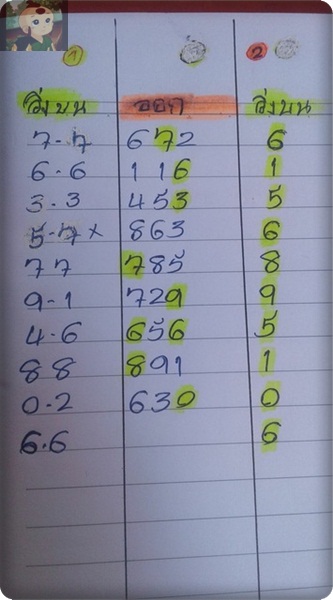 1 2
วิ่งบน ออก วิ่งบน
7-7 672 6
6-6 116 1
3-3 453 5
5-7 x 863 6
77 785 8
9-1 729 9
4-6 656 5
88 891 1
0-2 630 0
6-6 6